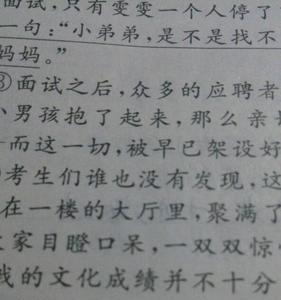 面试,只有雯雯一个人停了
一句:“小弟弟,是不是找不
妈妈。”
③面试之后,众多的应聘者
小男孩抱了起来,那么亲
而这一切,被早已架设好
考生们谁也没有发现,这
在一楼的大厅里,聚满了
家目瞪口呆,一双双惊
我的文化成绩并不十分